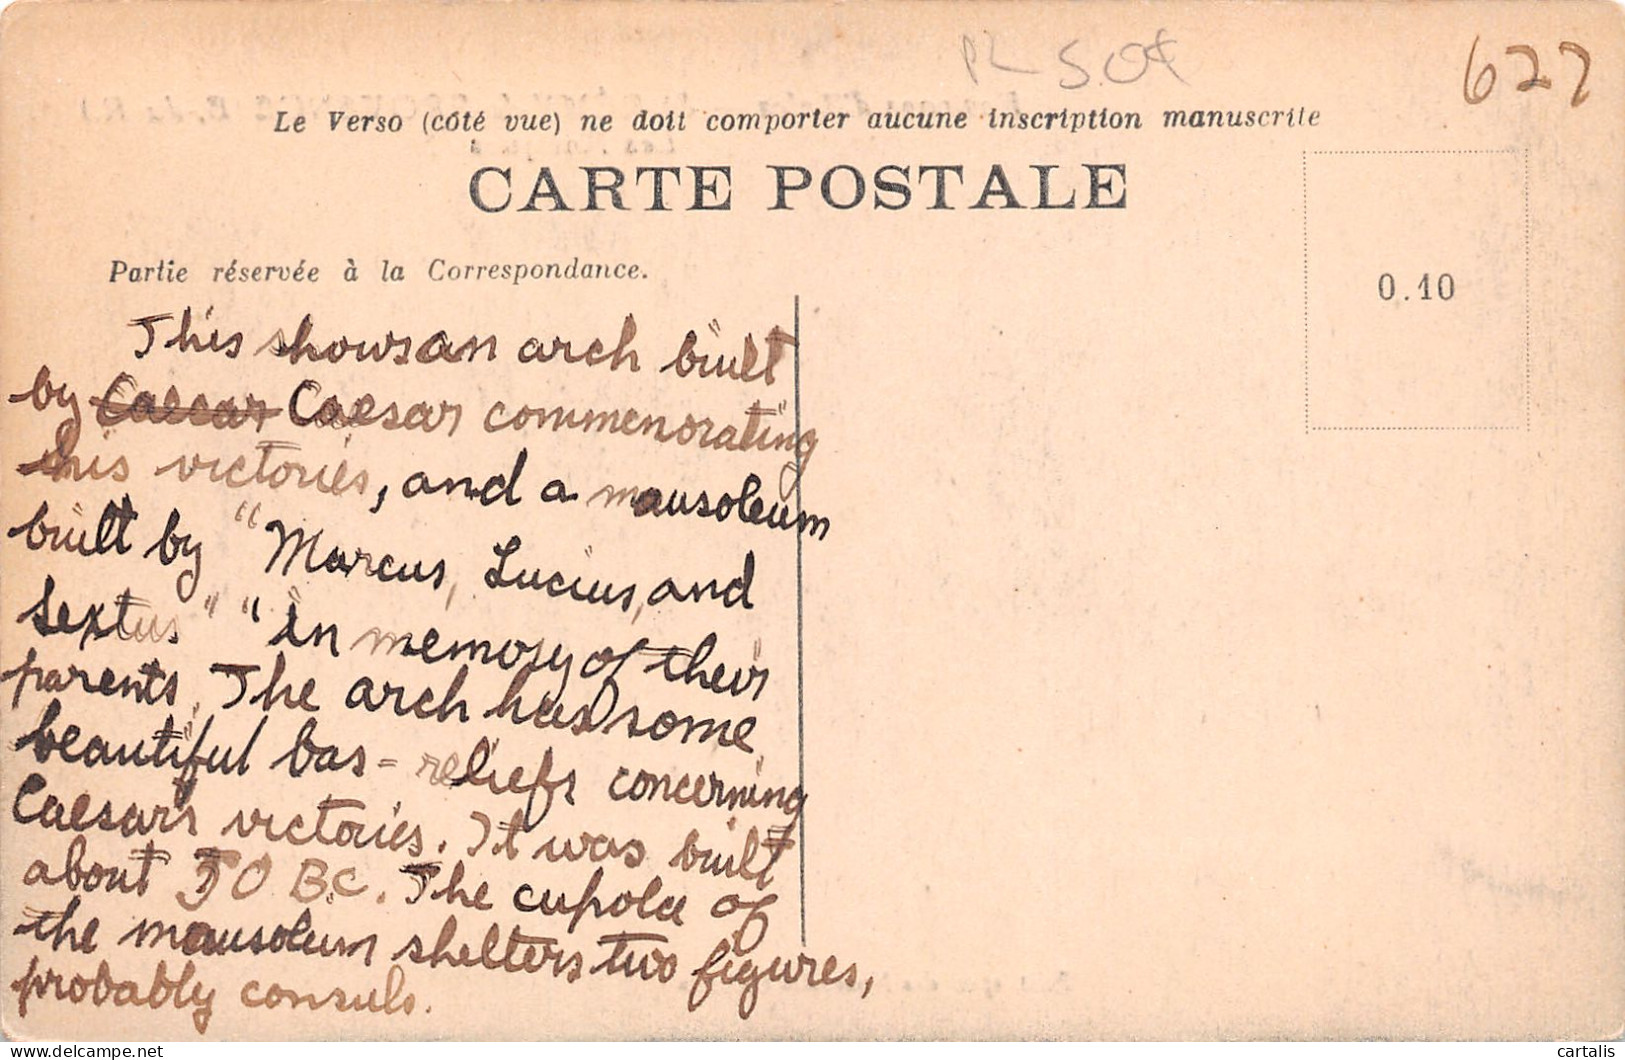 PL 5.0€
627
Le Verso (côté vue) ne doit comporter aucune inscription manuscrite
CARTE POSTALE
Partie réservée à la Correspondance.
0.10
This shows an arch built
by Caesar Caesar commenorating
his victories, and a mausoleum
built by "Marcus, Lucius, and
Sextus" "in memory of their
parents. The arch has some
beautiful bas-reliefs concerning
Caesar's victories. It was built
about 50 BC. The cupola of
the mausoleum shelters two figures,
probably consuls.
cartalis
delcampe.net